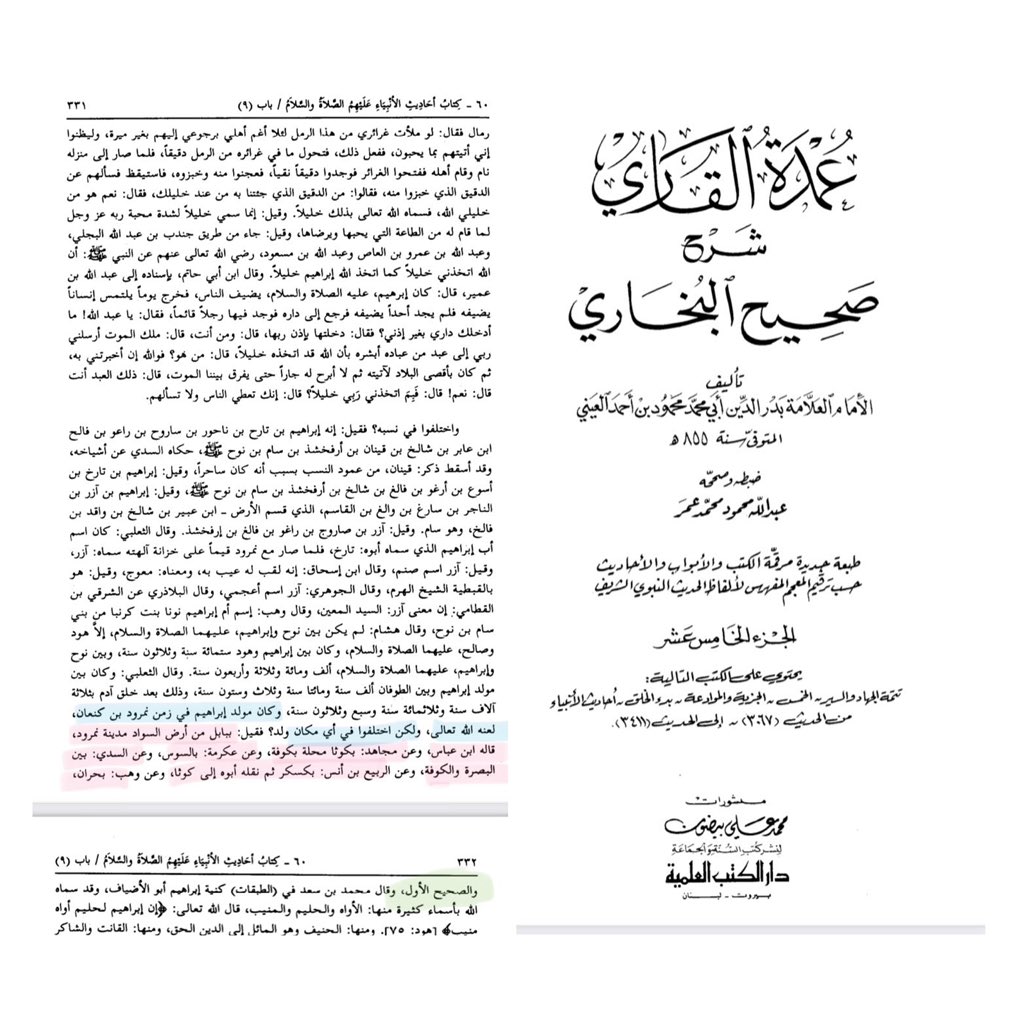 ٣٣١ ٦٠ ـ كِتابُ أحادِيثِ الأنْبِياءِ عَلَيْهِمُ الصَّلاةُ والسَّلامُ / باب (٩)
رمال فقال: لو ملأت غرائري من هذا الرمل لئلا أغم أهلي برجوعي إليهم بغير ميرة، وليظنوا
إني أتيتهم بما يحبون، ففعل ذلك، فتحول ما في غرائره من الرمل دقيقاً، فلما صار إلى منزله
نام وقام أهله ففتحوا الغرائر فوجدوا دقيقاً نقياً، فعجنوا منه وخبزوه، فاستيقظ فسألهم عن
الدقيق الذي خبزوا منه، فقالوا: من الدقيق الذي جئتنا به من عند خليلك، فقال: نعم هو من
خليلي الله، فسماه الله تعالى بذلك خليلاً. وقيل: إنما سمي خليلاً لشدة محبة ربه عز وجل
لما قام له من الطاعة التي يحبها ويرضاها، وقيل: جاء من طريق جندب بن عبد الله البجلي،
وعبد الله بن عمرو بن العاص وعبد الله بن مسعود، رضي الله تعالى عنهم عن النبي ﷺ: أن
الله اتخذني خليلاً كما اتخذ الله إبراهيم خليلاً. وقال ابن أبي حاتم، بإسناده إلى عبد الله بن
عمير، قال: كان إبرهيم، عليه الصلاة والسلام، يضيف الناس، فخرج يوماً يلتمس إنساناً
يضيفه فلم يجد أحداً يضيفه فرجع إلى داره فوجد فيها رجلاً قائماً، فقال: يا عبد الله! ما
أدخلك داري بغير إذني؟ فقال: دخلتها بإذن ربها، قال: ومن أنت، قال: ملك الموت أرسلني
ربي إلى عبد من عباده أبشره بأن الله قد اتخذه خليلاً، قال: من هو؟ فوالله إن أخبرتني به،
ثم كان بأقصى البلاد لآتيته ثم لا أبرح له جاراً حتى يفرق بيننا الموت، قال: ذلك العبد أنت
قال: نعم! قال: فَبِمَ اتخذني رَبِي خليلاً؟ قال: إنك تعطي الناس ولا تسألهم.
واختلفوا في نسبه؟ فقيل: إنه إبراهيم بن تارح بن ناحور بن ساروح بن راعو بن فالح
ابن عابر بن شالخ بن قينان بن أرفخشذ بن سام بن نوح ﷺ، حكاه السدي عن أشياخه،
وقد أسقط ذكر: قينان، من عمود النسب بسبب أنه كان ساحراً، وقيل: إبراهيم بن تارخ بن
أسوع بن أرغو بن فالغ بن شالخ بن أرفخشذ بن سام بن نوح ﷺ، وقيل: إبراهيم بن آزر بن
الناجر بن سارغ بن والغ بن القاسم، الذي قسم الأرض ـ ابن عبير بن شالخ بن واقد بن
فالخ، وهو سام. وقيل: آزر بن صاروج بن راغو بن فالغ بن إرفخشذ. وقال الثعلبي: كان اسم
أب إبراهيم الذي سماه أبوه: تارخ، فلما صار مع نمرود قيماً على خزانة آلهته سماه: آزر،
وقيل: آزر اسم صنم، وقال ابن إسحاق: إنه لقب له عيب به، ومعناه: معوج، وقيل: هو
بالقبطية الشيخ الهرم، وقال الجوهري: آزر اسم أعجمي، وقال البلاذري عن الشرقي بن
القطامي: إن معنى آزر: السيد المعين، وقال وهب: إسم أم إبراهيم نونا بنت كرنبا من بني
سام بن نوح، وقال هشام: لم يكن بين نوح وإبراهيم، عليهما الصلاة والسلام، إلاَّ هود
وصالح، عليهما الصلاة والسلام، وكان بين إبراهيم وهود ستمائة سنة وثلاثون سنة، وبين نوح
وإبراهيم، عليهما الصلاة والسلام، ألف ومائة وثلاثة وأربعون سنة. وقال الثعلبي: وكان بين
مولد إبراهيم وبين الطوفان ألف سنة ومائتا سنة وثلاث وستون سنة، وذلك بعد خلق آدم بثلاثة
آلاف سنة وثلاثمائة سنة وسبع وثلاثون سنة، وكان مولد إبراهيم في زمن نمرود بن كنعان،
لعنه الله تعالى، ولكن اختلفوا في أي مكان ولد؟ فقيل: ببابل من أرض السواد مدينة نمرود،
قاله ابن عباس، وعن مجاهد: بكوثا محلة بكوفة، وعن عكرمة: بالسوس، وعن السدي: بين
البصرة والكوفة، وعن الربيع بن أنس: بكسكر ثم نقله أبوه إلى كوثا، وعن وهب: بحران،
٣٣٢ ٦٠ ـ كِتابُ أحادِيثِ الأنْبِياءِ عَلَيْهِمُ الصَّلاةُ والسَّلامُ / باب (٩)
والصحيح الأول، وقال محمد بن سعد في (الطبقات) كنية إبراهيم أبو الأضياف، وقد سماه
الله بأسماء كثيرة منها: الأواه والحليم والمنيب، قال الله تعالى: ﴿إن إبراهيم لحليم أواه
منيب﴾ [هود: ٢٧٥. ومنها: الحنيف وهو المائل إلى الدين الحق، ومنها: القانت والشاكر
عُمْدَةُ القَارِي
شَرْح
صَحِيح البُخَارِي
تأليف
الأمام العلامة بدر الدين أبي محمد محمود بن أحمد العيني
المتوفى سنة ٨٥٥ هـ
ضبطه وصححه
عبد الله محمود محمد عمر
طبعة جديدة مرقمة الكتب والأبواب والأحاديث
حسب ترقيم المعجم المفهرس لألفاظ الحديث النبوي الشريف
الجزء الخامس عشر
يحتوي على الكتب التالية:
تتمة الجهاد والسير ـ الخمس ـ الجزية والموادعة ـ بدء الخلق ـ أحاديث الأنبياء
من الحديث (٣٠٦٧) ـ إلى الحديث (٣٤١١)
منشورات
محمد علي بيضون
لنشر كتب السنة والجماعة
دار الكتب العلمية
بيروت - لبنان